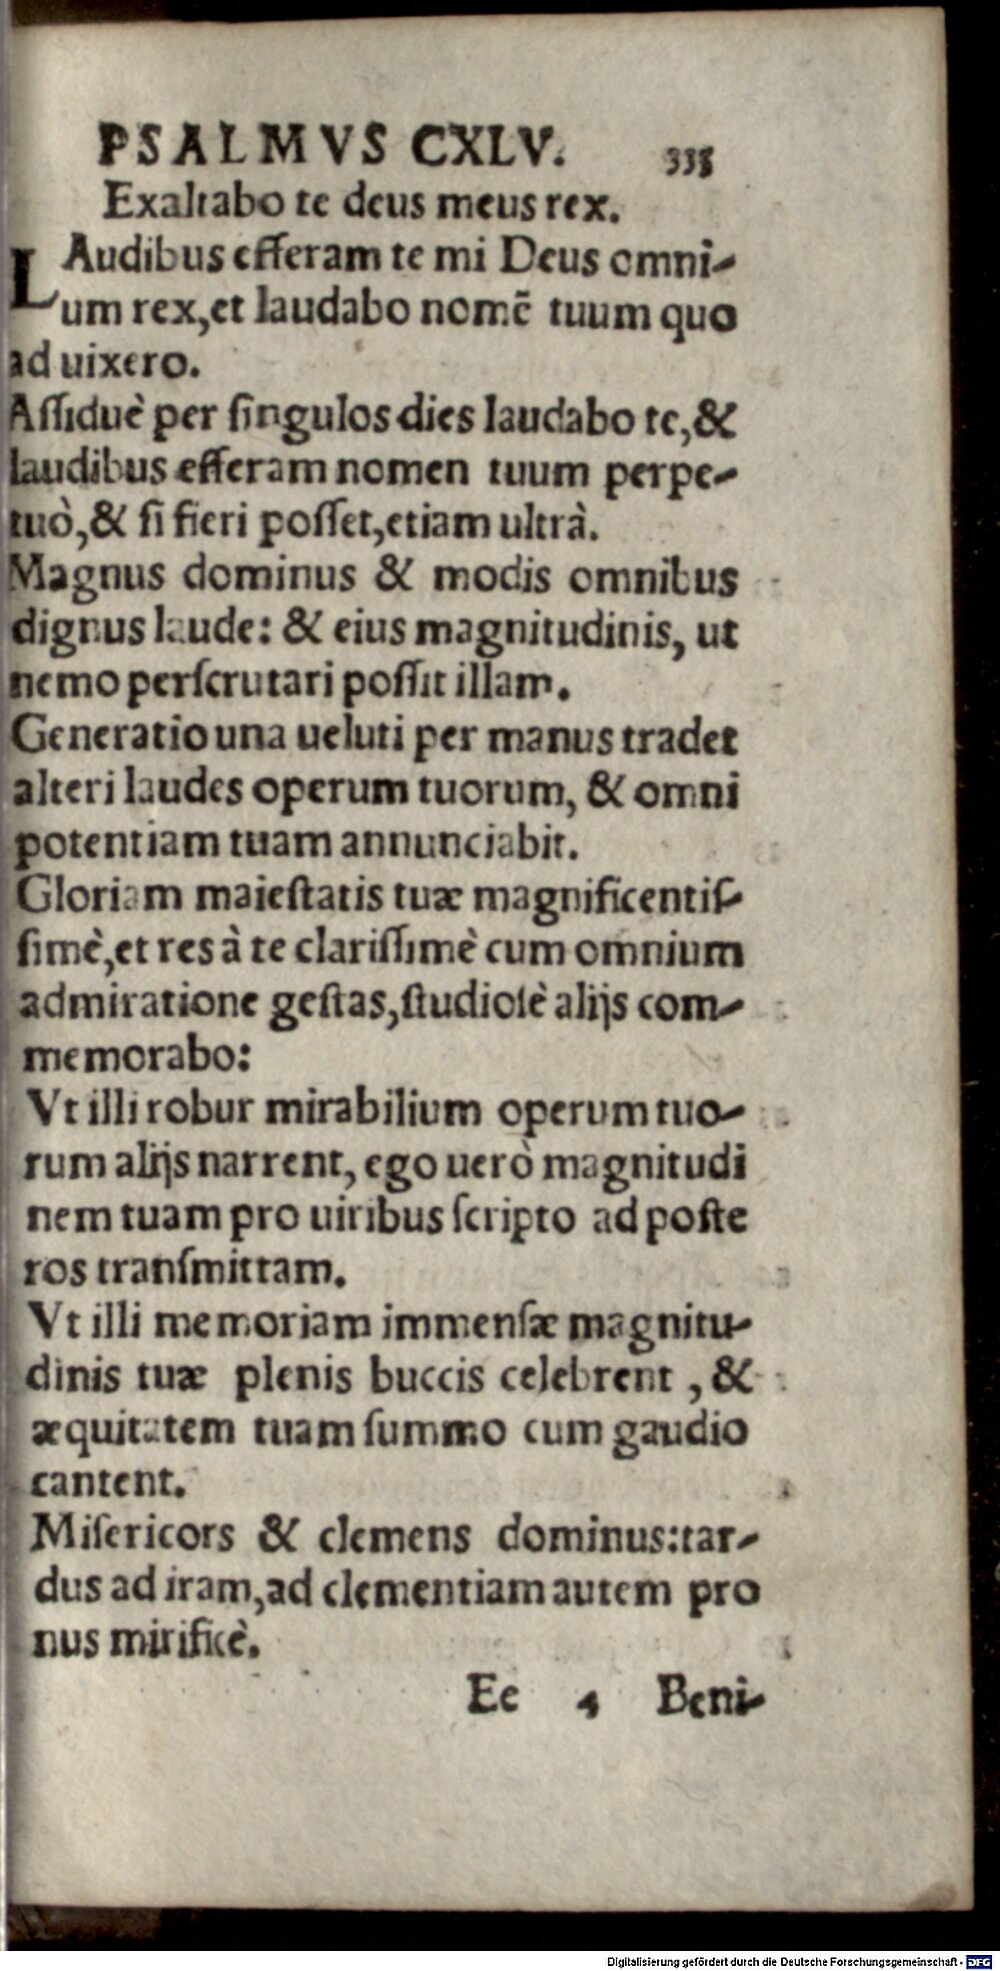 PSALMVS CXLV. 335
Exaltabo te deus meus rex.
LAudibus efferam te mi Deus omni-
um rex,et laudabo nomē tuum quo
ad uixero.
Aſſiduè per ſingulos dies laudabo te,&
laudibus efferam nomen tuum perpe-
tuò,& ſi fieri poſſet,etiam ultrà.
Magnus dominus & modis omnibus
dignus laude: & eius magnitudinis, ut
nemo perſcrutari poſſit illam.
Generatio una ueluti per manus tradet
alteri laudes operum tuorum, & omni
potentiam tuam annunciabit.
Gloriam maieſtatis tuæ magnificentiſ-
ſimè,et res à te clariſſimè cum omnium
admiratione geſtas,ſtudioſè alijs com-
memorabo:
Vt illi robur mirabilium operum tuo-
rum alijs narrent, ego uerò magnitudi
nem tuam pro uiribus ſcripto ad poſte
ros tranſmittam.
Vt illi memoriam immenſæ magnitu-
dinis tuæ plenis buccis celebrent , &
æquitatem tuam ſummo cum gaudio
cantent.
Miſericors & clemens dominus:tar-
dus ad iram,ad clementiam autem pro
nus mirificè.
Ee 4 Beni-
Digitalisierung gefördert durch die Deutsche Forschungsgemeinschaft - DFG